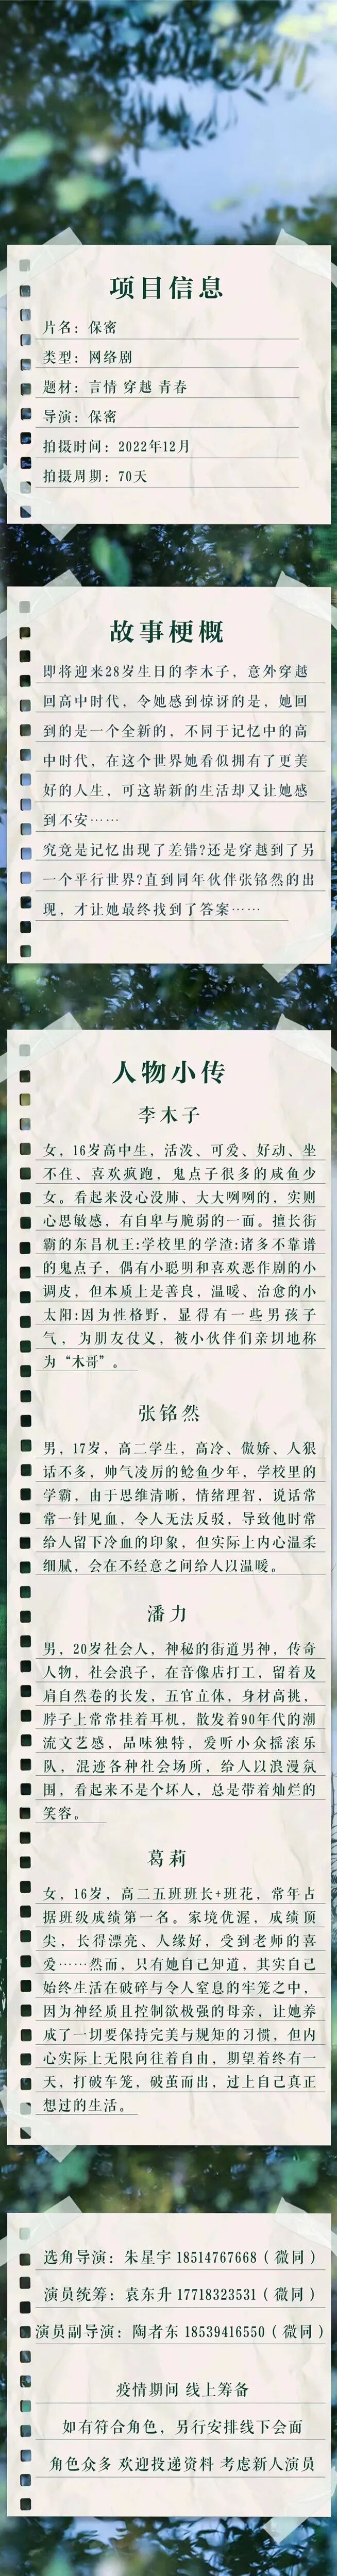 项目信息
片名：保密
类型：网络剧
题材：言情 穿越 青春
导演：保密
拍摄时间：2022年12月
拍摄周期：70天
故事梗概
即将迎来28岁生日的李木子，意外穿越
回高中时代，令她感到惊讶的是，她回
到的是一个全新的，不同于记忆中的高
中时代，在这个世界她看似拥有了更美
好的人生，可这崭新的生活却又让她感
到不安……
究竟是记忆出现了差错?还是穿越到了另
一个平行世界?直到同年伙伴张铭然的出
现，才让她最终找到了答案……
人物小传
李木子
女，16岁高中生，活泼、可爱、好动、坐
不住、喜欢疯跑，鬼点子很多的咸鱼少
女。看起来没心没肺、大大咧咧的，实则
心思敏感，有自卑与脆弱的一面。擅长街
霸的东昌机王:学校里的学渣:诸多不靠谱
的鬼点子，偶有小聪明和喜欢恶作剧的小
调皮，但本质上是善良，温暖、治愈的小
太阳:因为性格野，显得有一些男孩子
气，为朋友仗义，被小伙伴们亲切地称
为“木哥”。
张铭然
男，17岁，高二学生，高冷、傲娇、人狠
话不多，帅气凌厉的鲶鱼少年，学校里的
学霸，由于思维清晰，情绪理智，说话常
常一针见血，令人无法反驳，导致他时常
给人留下冷血的印象，但实际上内心温柔
细腻，会在不经意之间给人以温暖。
潘力
男，20岁社会人，神秘的街道男神，传奇
人物，社会浪子，在音像店打工，留着及
肩自然卷的长发，五官立体，身材高挑，
脖子上常常挂着耳机，散发着90年代的潮
流文艺感，品味独特，爱听小众摇滚乐
队，混迹各种社会场所，给人以浪漫氛
围，看起来不是个坏人，总是带着灿烂的
笑容。
葛莉
女，16岁，高二五班班长+班花，常年占
据班级成绩第一名。家境优渥，成绩顶
尖，长得漂亮、人缘好，受到老师的喜
爱……然而，只有她自己知道，其实自己
始终生活在破碎与令人窒息的牢笼之中，
因为神经质且控制欲极强的母亲，让她养
成了一切要保持完美与规矩的习惯，但内
心实际上无限向往着自由，期望着终有一
天，打破车笼，破茧而出，过上自己真正
想过的生活。
选角导演：朱星宇 18514767668（微同）
演员统筹：袁东升 17718323531（微同）
演员副导演：陶者东 18539416550（微同）
疫情期间 线上筹备
如有符合角色，另行安排线下会面
角色众多 欢迎投递资料 考虑新人演员